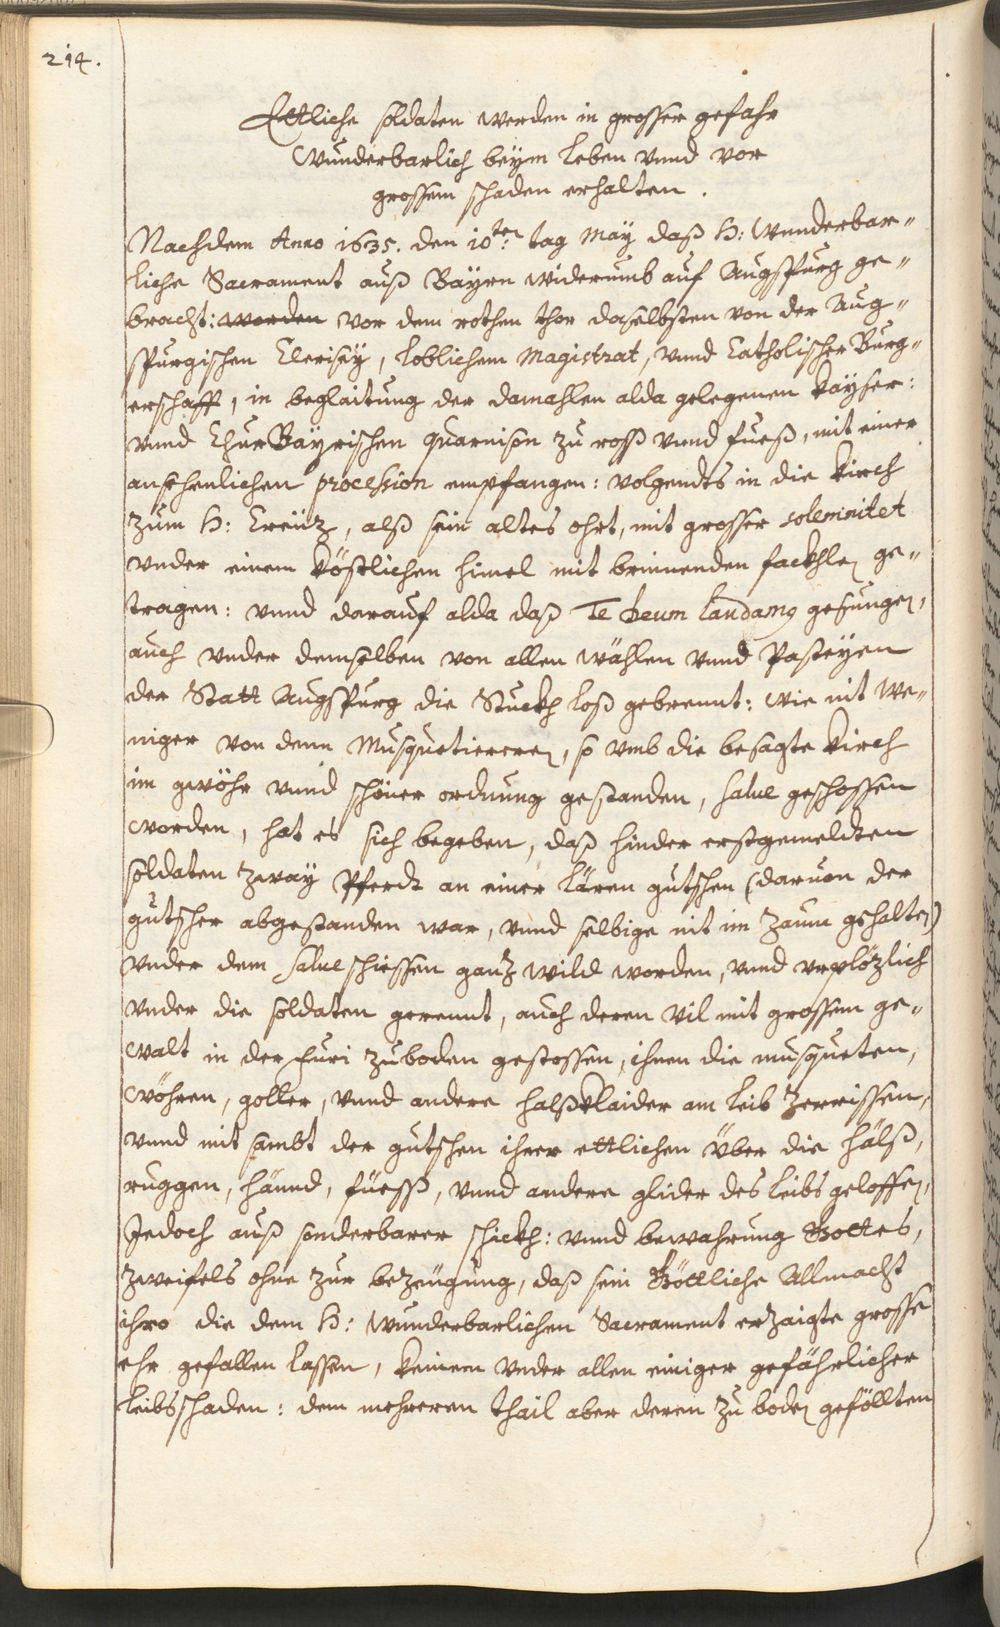 214.
Ettliche soldaten werden in grosser gefahr
Wunderbarlich beÿm leben vnnd vor
grossem schaden erhalten.
Nachdem Anno 1635. den 10ten: tag Maÿ daß H: Wunderbar„
liche Sacrament auß Bayrn widerumb auf Augspurg ge„
bracht: worden vor dem rothen thor daselbsten von der Aug„
spurgischen Clerisey, loblichem Magistrat, vnnd Catholischer Burg„
erschafft, in beglaitung der damahlen alda gelegenen kayser:
vnnd ChurBayrischen quarnison zu roß vnnd fueß, mit einer
ansehenlichen procession empfangen: volgendts in die kirch
zum H: Creütz, alß sein altes ohrt, mit grosser solemnitet
vnder einem köstlichen himel mit brinnenden fackhlen ge„
tragen: vnnd darauf alda daß Te Deum laudamus gesungen,
auch vnder demselben von allen wählen vnnd Pasteyen
der Statt Augspurg die Stuckh loß gebrennt: wie nit we„
niger von denn Musquetiereren, so vmb die besagte kirch
im gewöhr vnnd schöner ordnung gestanden, salve geschossen
worden, hat es sich begeben, daß hinder erstgemeldten
soldaten zway Pferdt an einer lären gutschen (daruon der
gutscher abgestanden war, vnnd selbige nit im zaum gehalten)
vnder dem salve schiessen gantz wild worden, vnnd vrplözlich
vnder die soldaten gerennt, auch deren vil mit grossem ge„
walt in der furi zuboden gestossen, ihnen die musqueten,
wöhren, goller, vnnd andere halßklaider am leib zerrissen,
vnnd mit sambt der gutschen ihrer ettlichen über die hälß,
ruggen, händ, füeß, vnnd andere glider des leibs geloffen,
Jedoch auß sonderbarer schickh: vnnd bewahrung Gottes,
zweifels ohne zur bezeügung, daß sein Göttliche Allmacht
ihro die dem H: wunderbarlichen Sacrament erzaigte grosse
ehr gefallen lassen, keinem vnder allen einiger gefährlicher
leibsschaden: dem mehreren thail aber deren zu boden gefölten